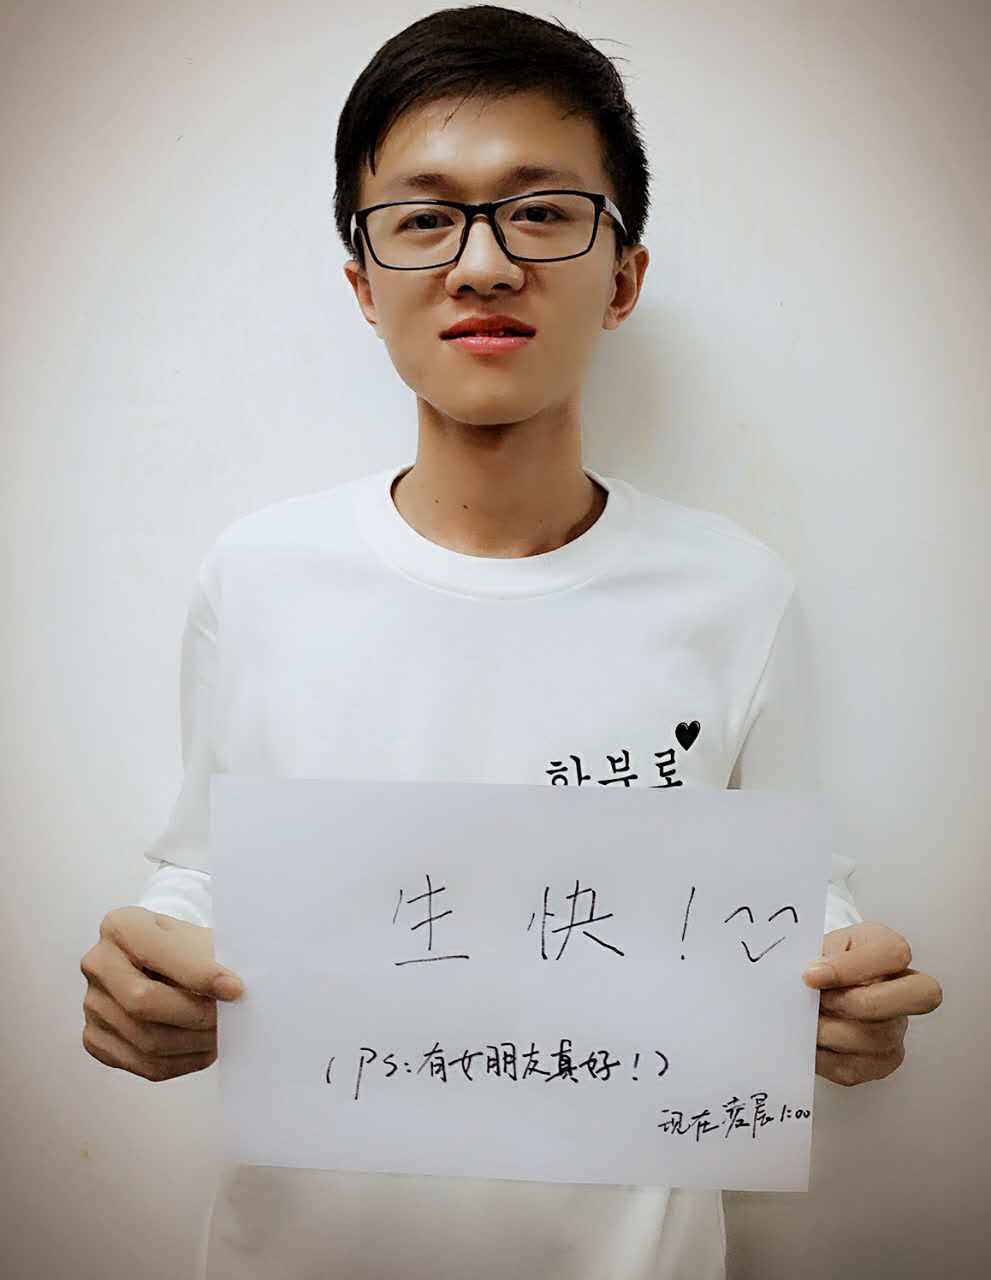 하부로
生快!^^
(PS:有女朋友真好!)
现在凌晨1:00